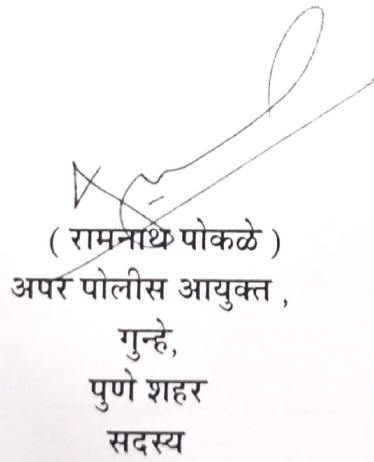 ( रामनाथ पोकळे )
अपर पोलीस आयुक्त ,
गुन्हे,
पुणे शहर
सदस्य